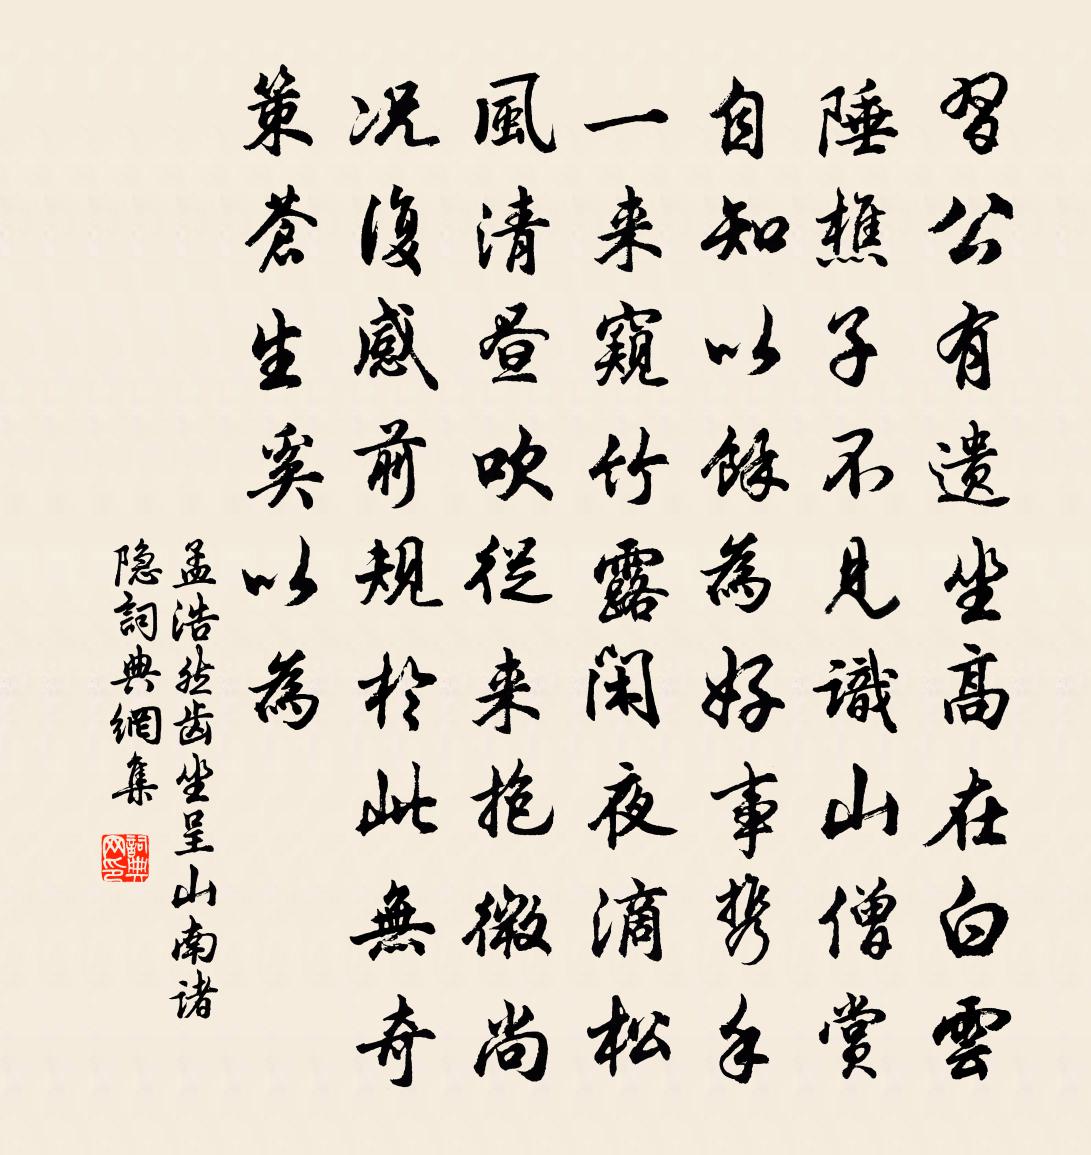 習公有遺坐高在白雲
陲樵子不見識山僧賞
自知以餘為好事携手
一来窺竹露閑夜滴松
風清晝吹從来抱微尚
况復感前規於此無奇
策蒼生奚以為
孟浩然齿坐呈山南诸
隐詞典網集
詞典网印